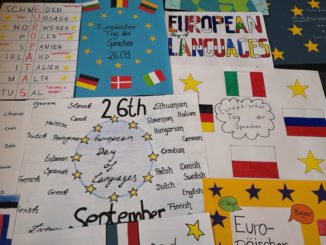 SCHWEDEN
UNGARN
NORWEGEN
SPANIEN
IRLAND
ITALIEN
MALTA
Europäischer
Tag der
Sprachen
26.09
EUROPEAN
Day of
LANGUAGES
26th
European
Day
of
Languages
September
Slovak
Czech
Danish
Dutch
Portuguese
Estonian
German
Spanish
French
Lithuanian
Slovenian
Italian
Hungarian
German
Croatian
Polish
Danish
Spanish
Dutch
Swedish
English
Finnish
Europäischer
Tag der
Sprachen
Ciao!
Bonjour
Euro-
päischer